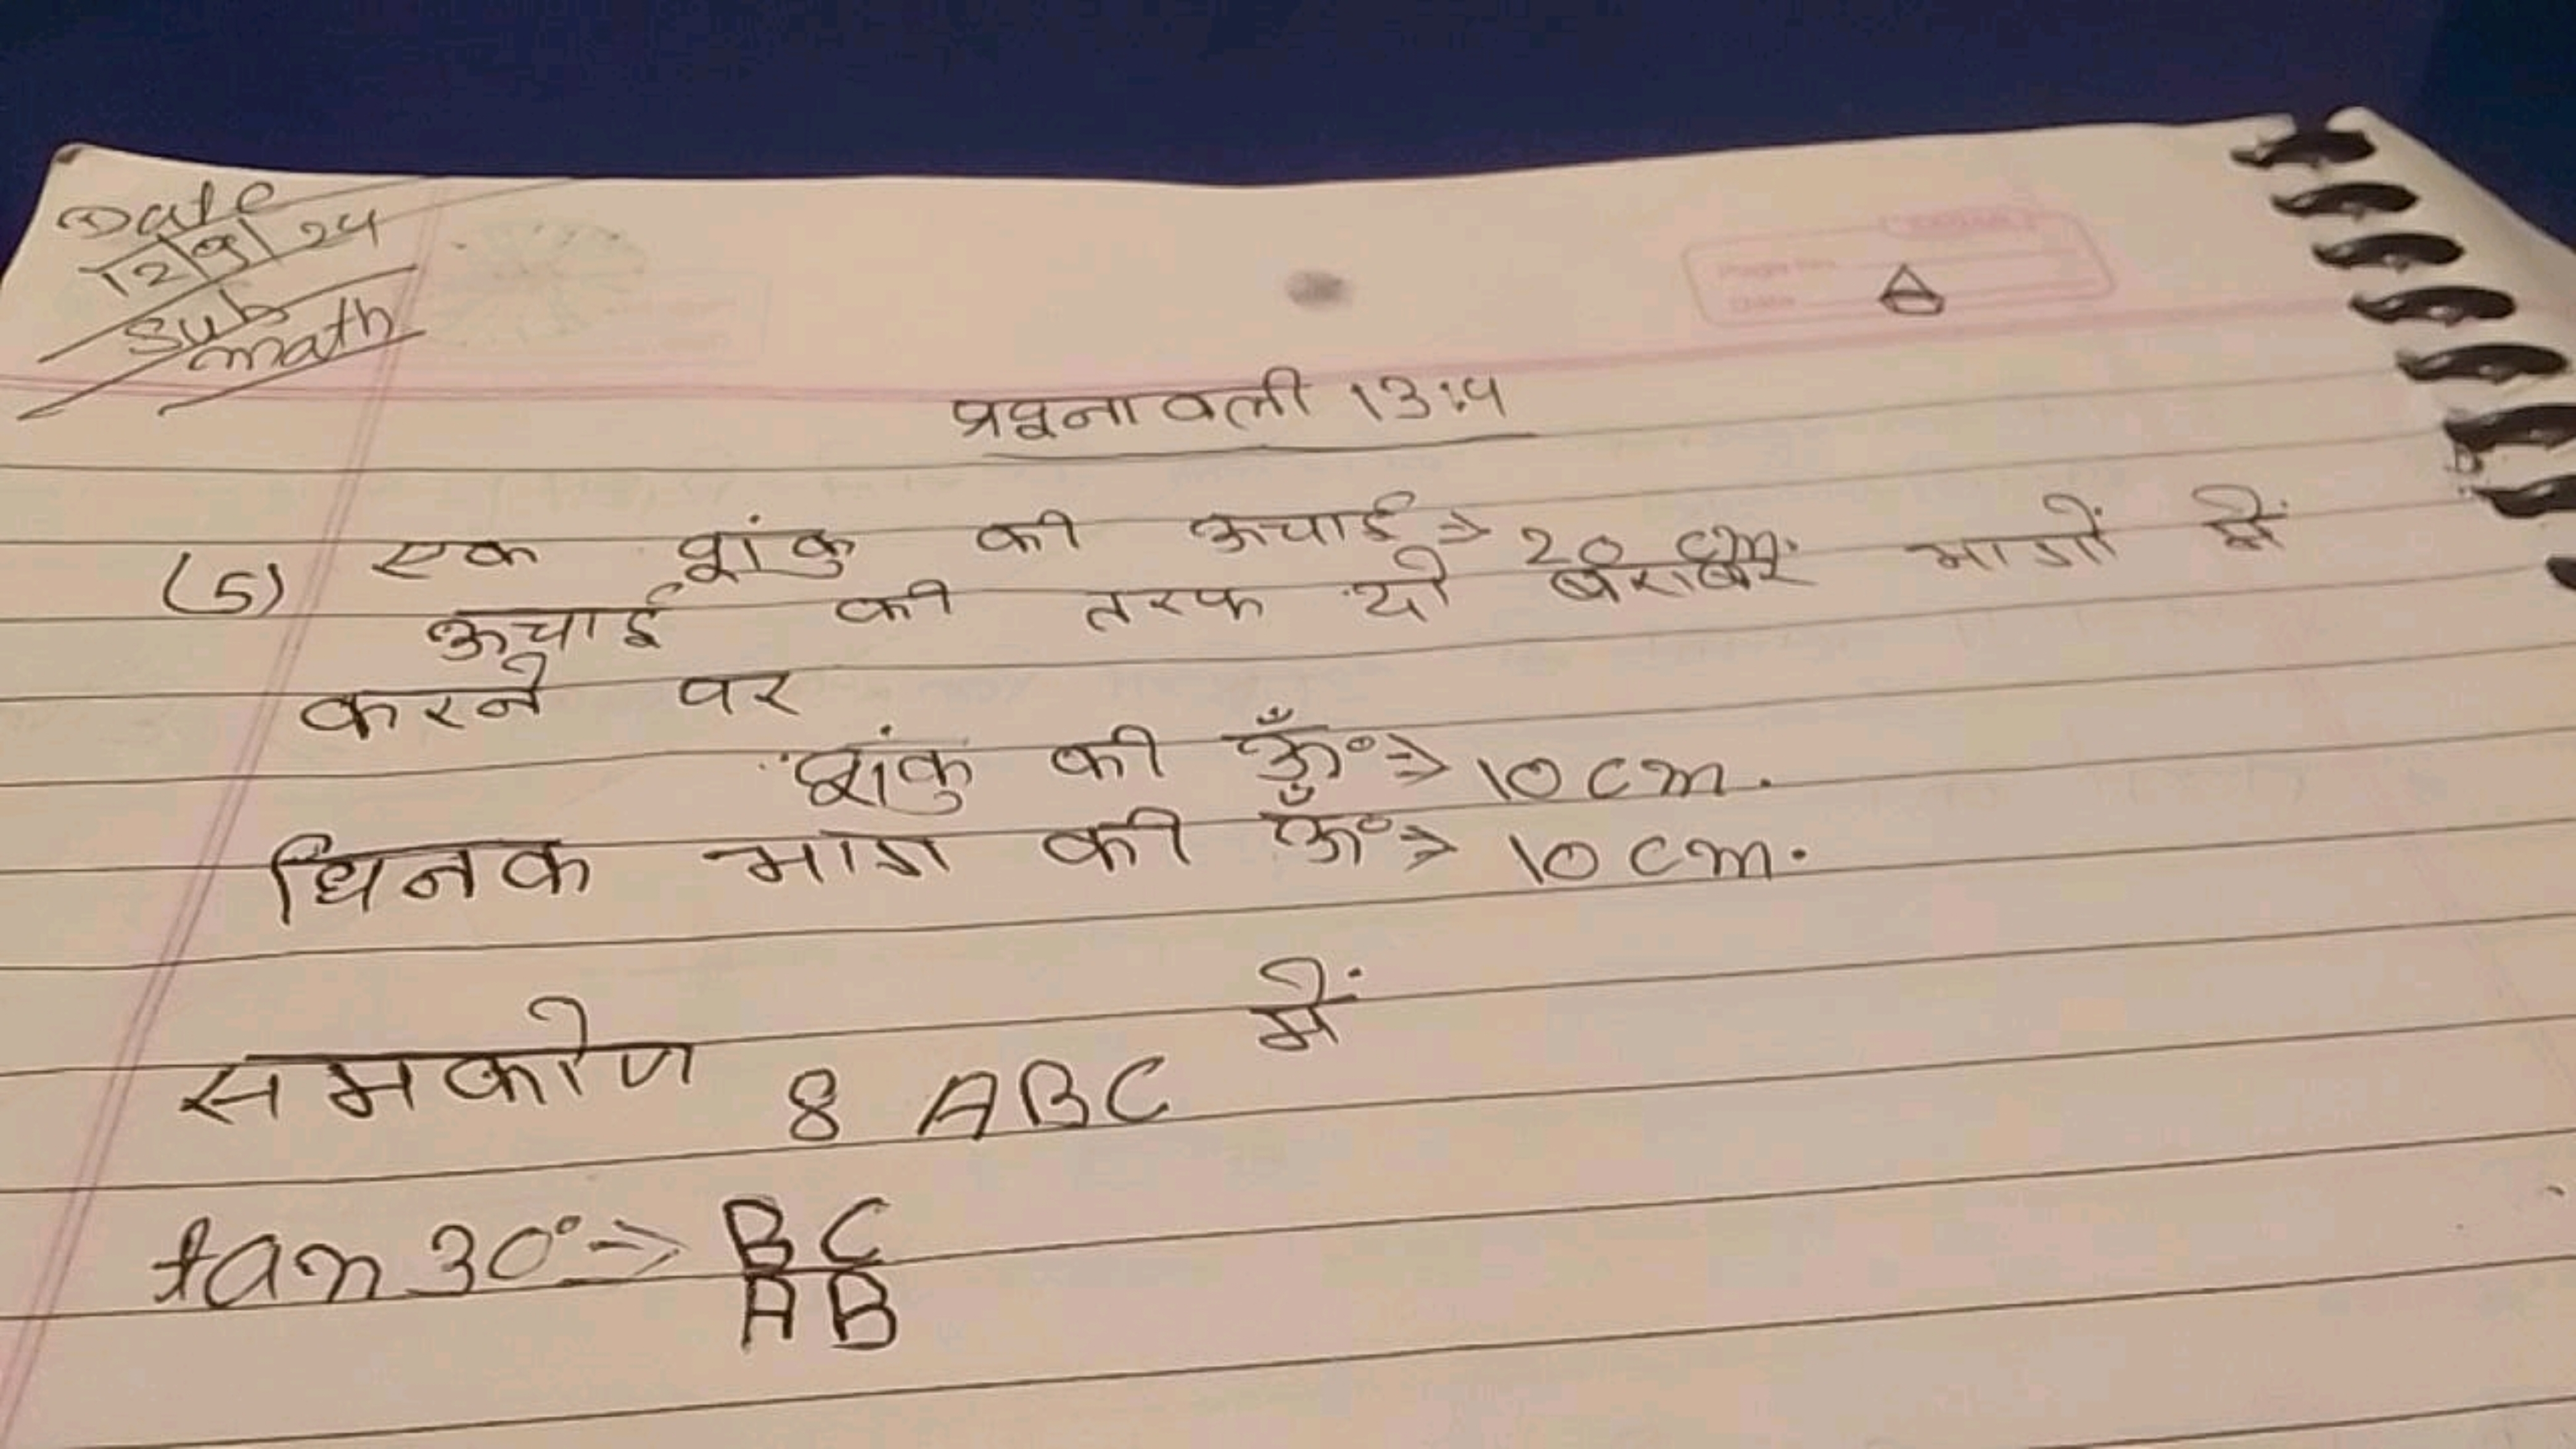 Date
12/9/24
Sub
math
प्रश्नावली 13:4
(5) एक शंकु की ऊचाई ⇒ 20 cm.
ऊचाई की तरफ दो बराबर भागों में
करने पर
शंकु की ऊँ° ⇒ 10 cm.
छिनक भाग की ऊँ° ⇒ 10 cm.
समकोण 8 ABC में
tan 30° ⇒ BC
AB